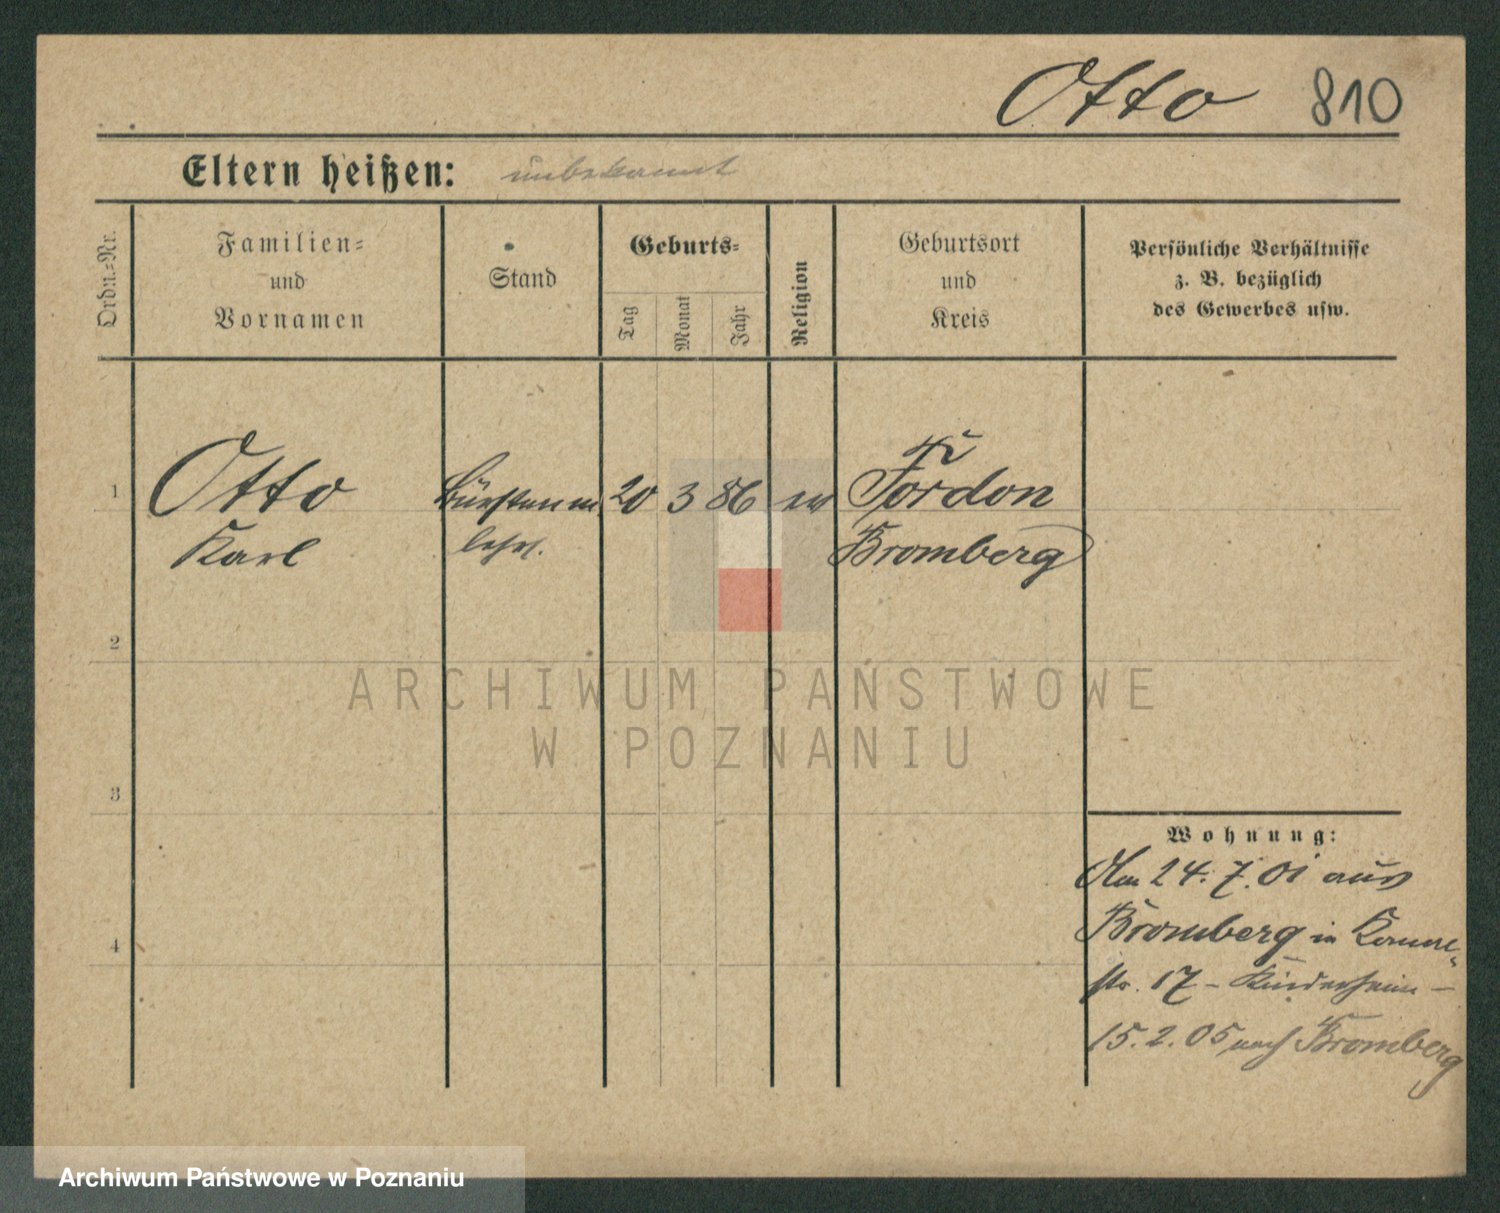 Otto 810
Eltern heißen: unbekannt
Ordn.=Nr.
Familien=
und
Vornamen
Stand
Geburts=
Tag
Monat
Jahr
Religion
Geburtsort
und
Kreis
Persönliche Verhältnisse
z. B. bezüglich
des Gewerbes usw.
1 Otto Bürstenm. 20 3 86 ev Fordon
Karl lehrl. Bromberg
2
3
4
Wohnung:
Am 24. 7. 01 aus
Bromberg in
str. 17 - Kinderheim -
15. 2. 05 nach Bromberg
ARCHIWUM PAŃSTWOWE
W POZNANIU
Archiwum Państwowe w Poznaniu